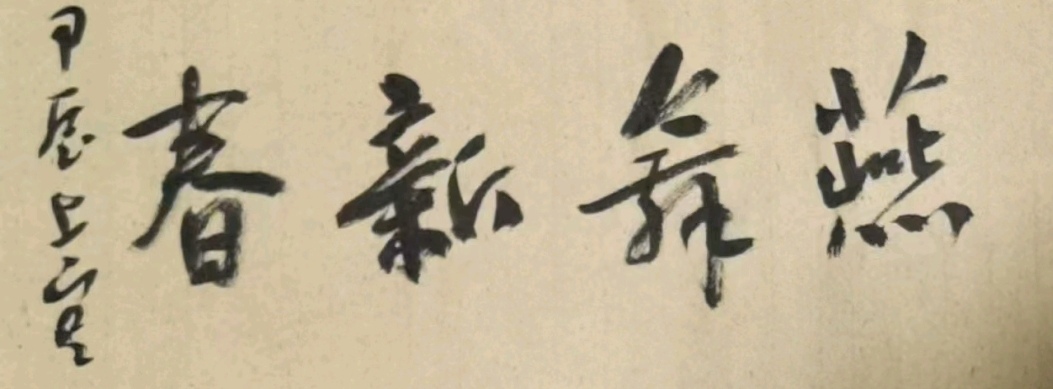 燕舞新春
甲辰上